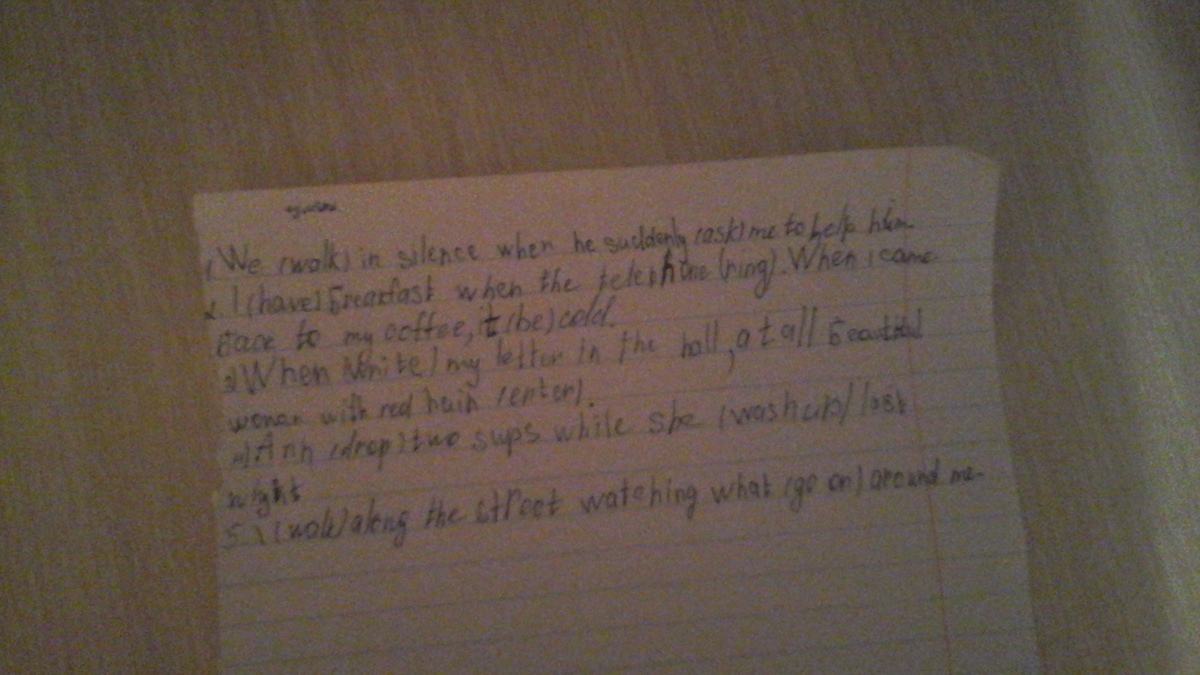 1 We (walk) in silence when he suddenly (ask) me to help him
2. I (have) breakfast when the telephone (ring). When I came
back to my coffee, it (be) cold.
3) When I (write) my letter in the hall, a tall beautiful
woman with red hair (enter).
4) Ann (drop) two sups while she (wash up) last
night
5. I (walk) along the street watching what (go on) around me.